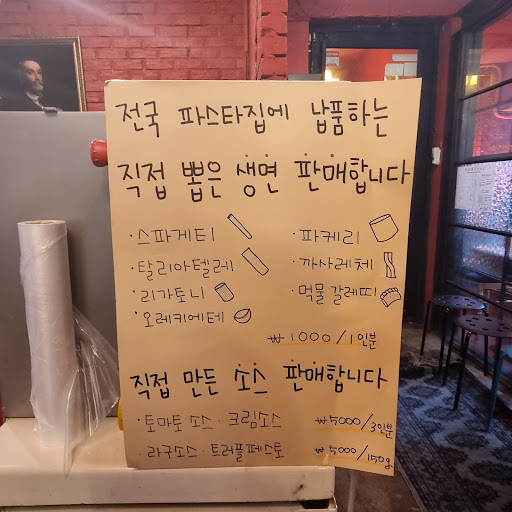 전국 파스타집에 납품하는
직접 뽑은 생면 판매합니다
· 스파게티
· 파케리
· 탈리아텔레
· 까사레체
· 리가토니
· 먹물 갈레띠
· 오레키에테
₩1000/1인분
직접 만든 소스 판매합니다
· 토마토 소스 · 크림소스 ₩5000/3인분
· 라구소스 · 트러플페스토 ₩5000/150g